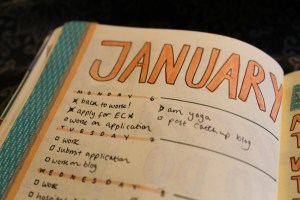 JANUARY
MONDAY 6
back to work!
apply for EC
work on application
am yoga
post catch up blog
TUESDAY 7
work
submit application
work on blog
WEDNESDAY 8
work